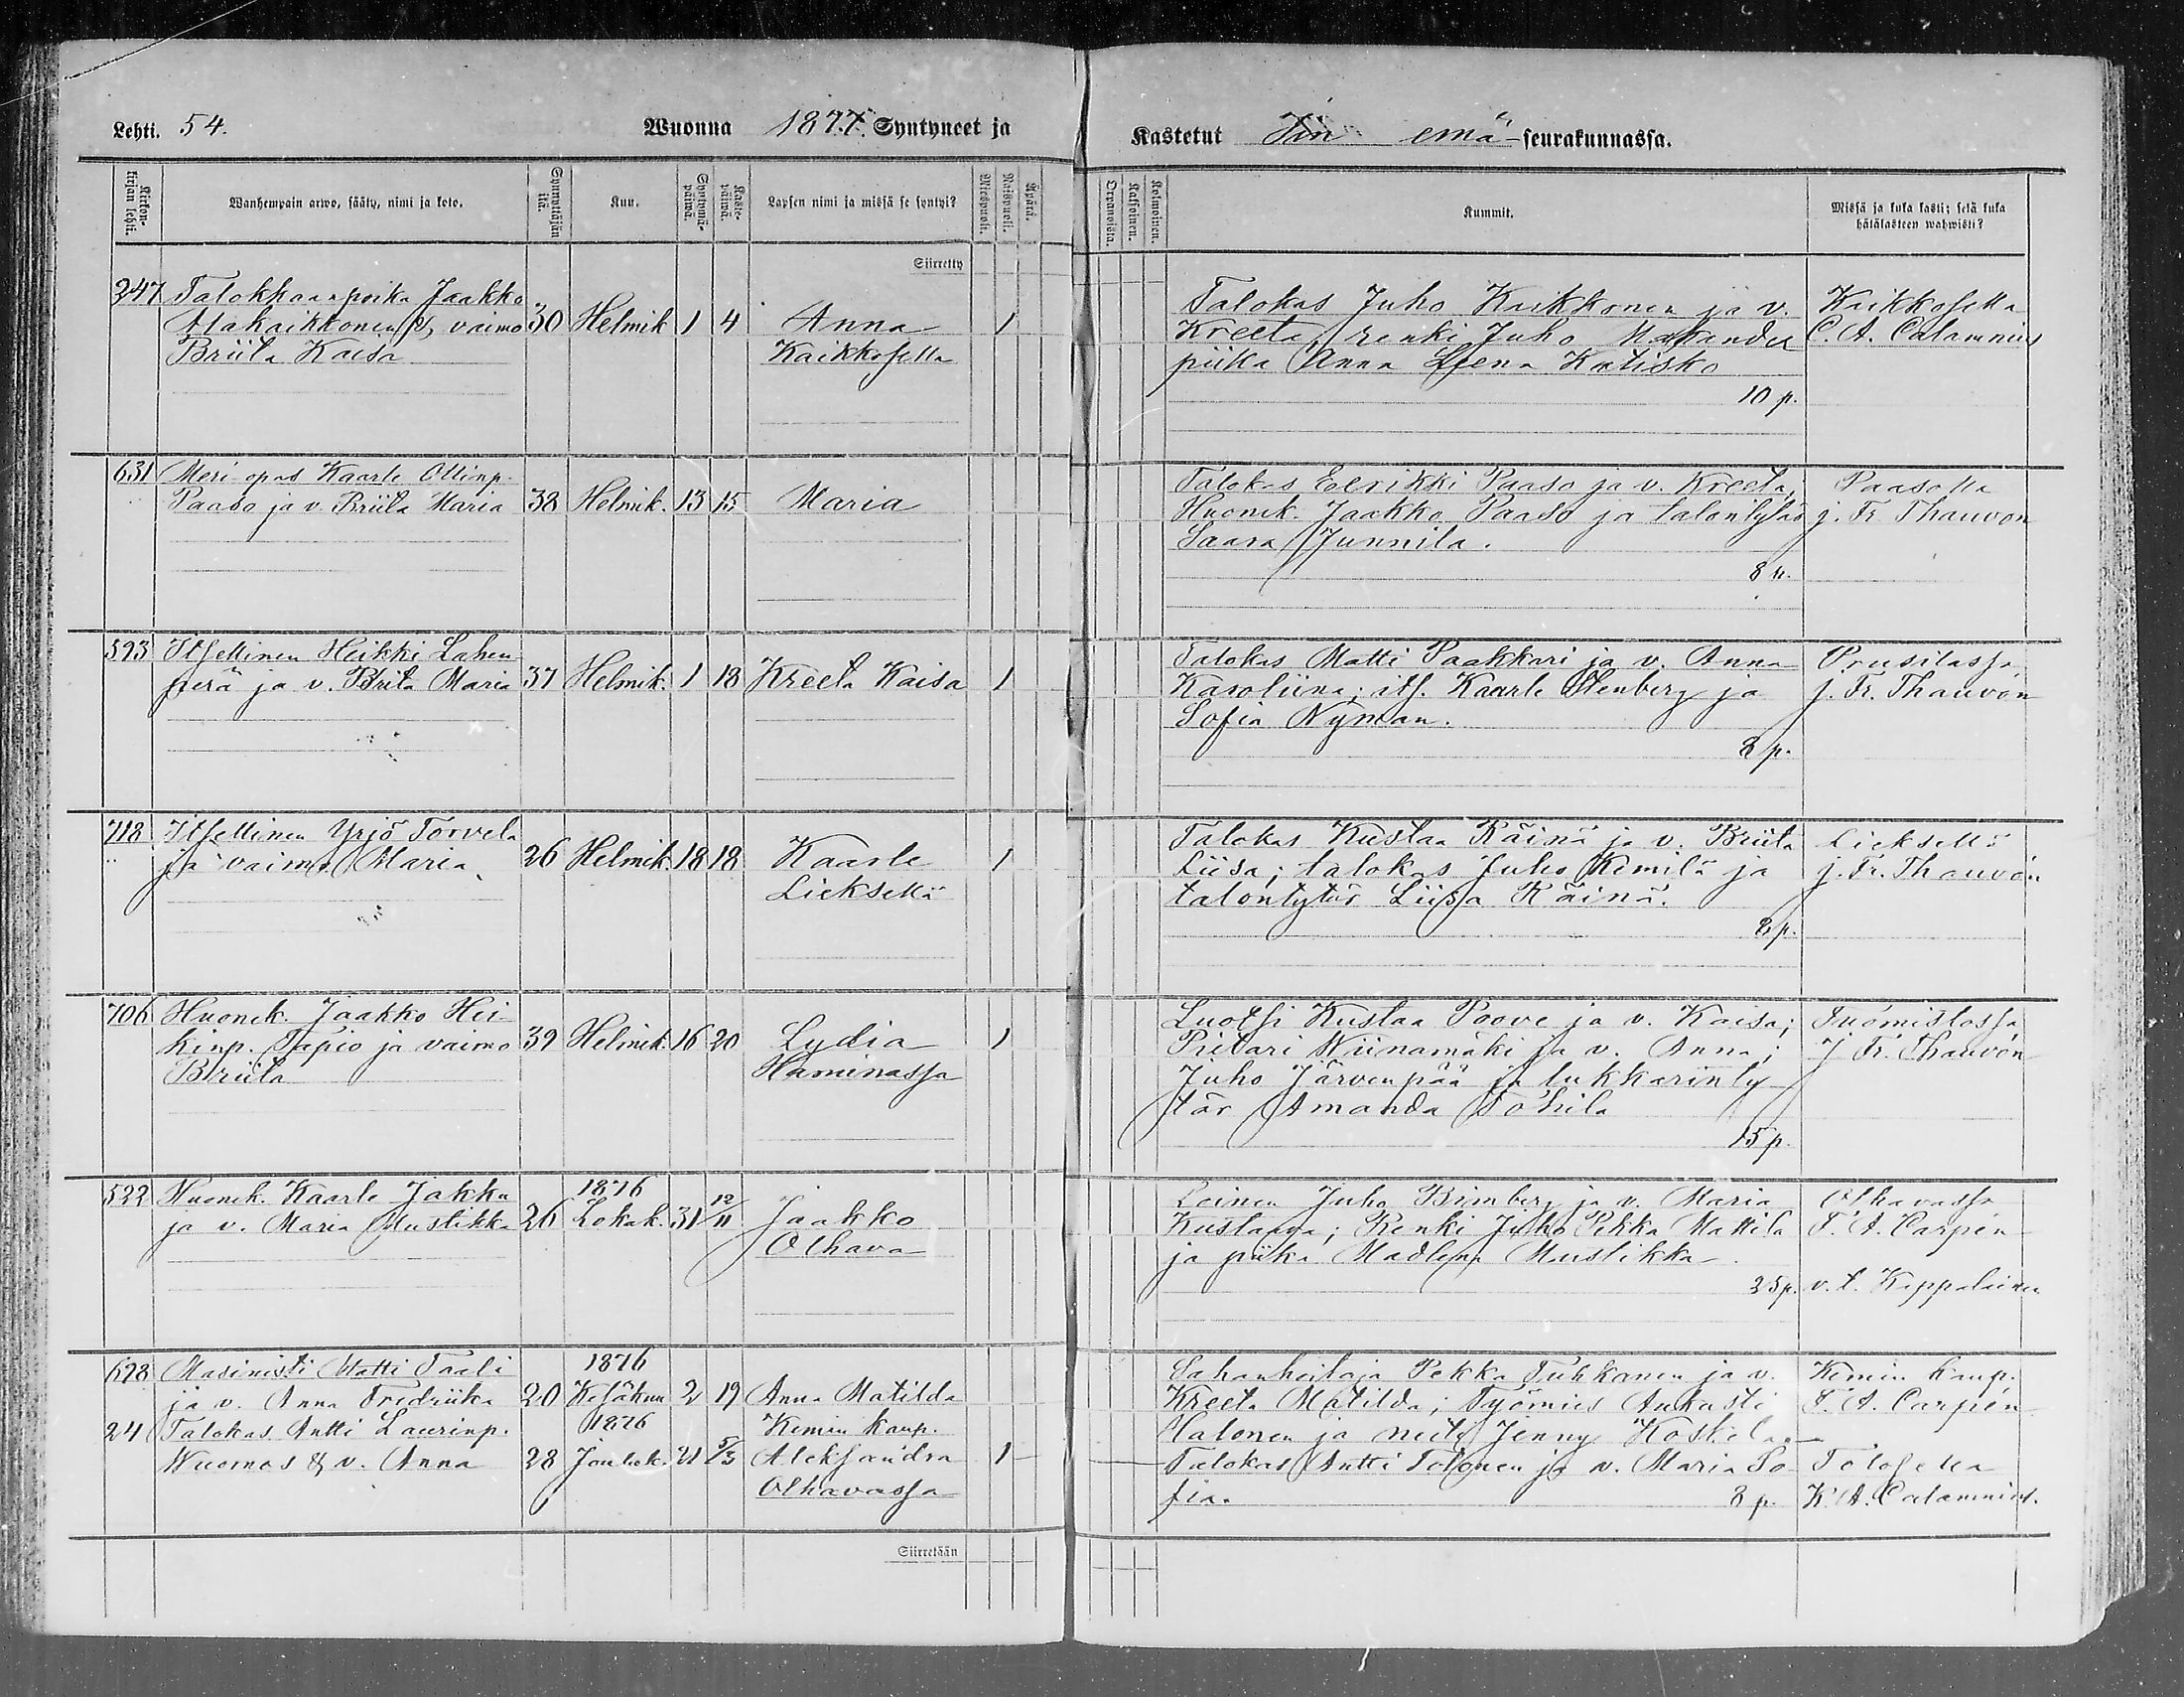 Lehti. 54.
Wuonna 1877. Syntyneet ja
Kirkonkirjan lehti.
Wanhempain arwo, sääty, nimi ja koto.
Synnyttäjän ikä.
Kuu.
Syntymäpäiwä.
Kastepäiwä.
Lapsen nimi ja missä se syntyi?
Miespuoli.
Naispuoli.
Äpärä.
Siirretty
247 Talokkaanpoika Jaakko
Alakaikkonen & vaimo 30 Helmik 1 4 Anna 1
Briita Kaisa Kaikkosella
631 Meri opas Kaarle Ollinp.
Paaso ja v. Briita Maria 38 Helmik. 13 15 Maria
593 Itsellinen Heikki Lahen
perä ja v. Brita Maria 37 Helmik. 1 18 Kreeta Kaisa 1
718 Itsellinen Yrjö Torvela
ja vaimo Maria 26 Helmik. 18 18 Kaarle 1
Lieksellä
706 Huonek. Jaakko Hei-
kinp. Tapio ja vaimo 39 Helmik. 16 20 Lydia 1
Briita Haminassa
522 Huonek. Kaarle Jakku 1876
ja v. Maria Mustikka 26 Lokak. 31 12/11 Jaakko
Olhava
678 Masinisti Matti Taali 1876
ja v. Anna Fredriika 20 Kesäkuu 2 19 Anna Matilda
24 Talokas Antti Laurinp. 1876 Kemin kaup.
Wuornos & v. Anna 28 Jouluk. 21 5/3 Aleksandra 1
Olhavassa
Siirretään
Kastetut Iin emä-seurakunnassa.
Orpanoista.
Kaksoinen.
Kolmoinen.
Kummit.
Missä ja kuka kasti; sekä kuka
hätäkasteen wahwisti?
Talokas Juho Kaikkonen ja v. Kaikkosella
Kreeta, renki Juho Makander C. A. Calamnius
piika Anna Leena Katisko
10 p.
Talokas Eerikki Paaso ja v. Kreeta, Paasolla
Huonek. Jaakko Paaso ja talontytär j. Fr. Thauvón
Saara Junnila.
8 p.
Talokas Matti Paakkari ja v. Anna Prusilassa
Karoliina; its. Kaarle Stenberg ja j. Fr. Thauvón
Sofia Nyman.
8 p.
Talokas Kustaa Räinä ja v. Briita Lieksellä
Liisa; talokas Juho Kemilä ja j. Fr. Thauvón
talontytär Liisa Räinä.
8 p.
Luotsi Kustaa Poove ja v. Kaisa; Tuomistossa
Pietari Wiinamäki ja v. Anna; j Fr. Thauvón
Juho Järvenpää ja lukkarinty-
tär Amanda Tohila
15 p.
Loinen Juho Brimberg ja v. Maria Olhavassa
Kustaava; Renki Juho Pekka Mattila F. A. Carpén
ja piika Madlena Mustikka.
25 p. v. t. Kappalainen
Sahanhoitaja Pekka Tuhkanen ja v. Kemin kaup.
Kreeta Matilda; Työmies Aukusti F. A. Carpén
Halonen ja neity Jenny Koskela
Talokas Antti Tolonen ja v. Maria So- Tolosella
fia. 8 p. K. A. Calamnius.